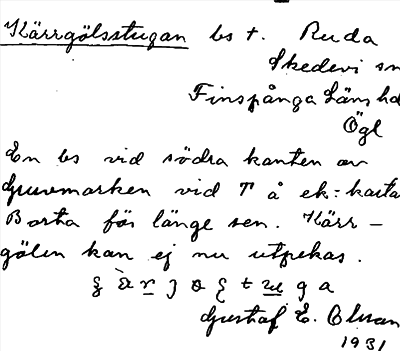 Kärrgölsstugan bs t. Ruda
Skedevi sn
Finspånga Läns hd
Ögl
En bs vid södra kanten av
Gruvmarken vid T å ek: karta
Borta för länge sen. Kärr-
gölen kan ej nu utpekas.
Gustaf E. Olsson
1931